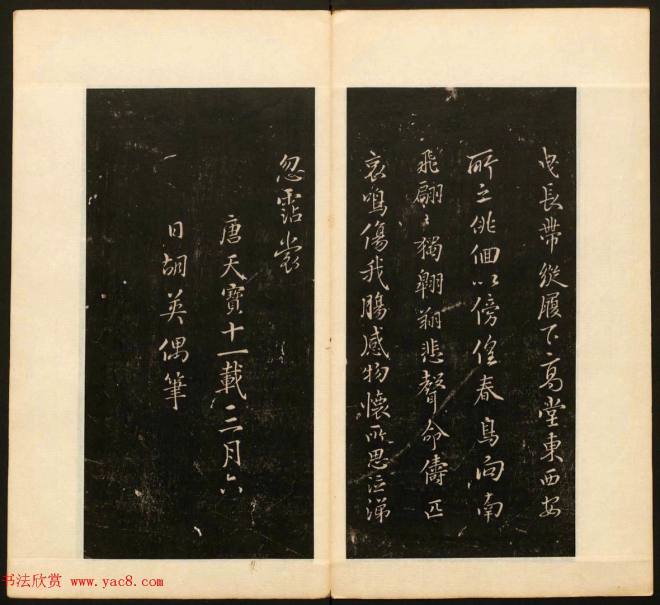 曳長帶縱履下高堂東西安
所之俳佪以傍偟春鳥向南
飛翩〻獨翱翔悲聲命儔匹
哀鳴傷我腸感物懷所思泣涕
忽霑裳
唐天寶十一載二月六
日胡英偶筆
书法欣赏 www.yac8.com